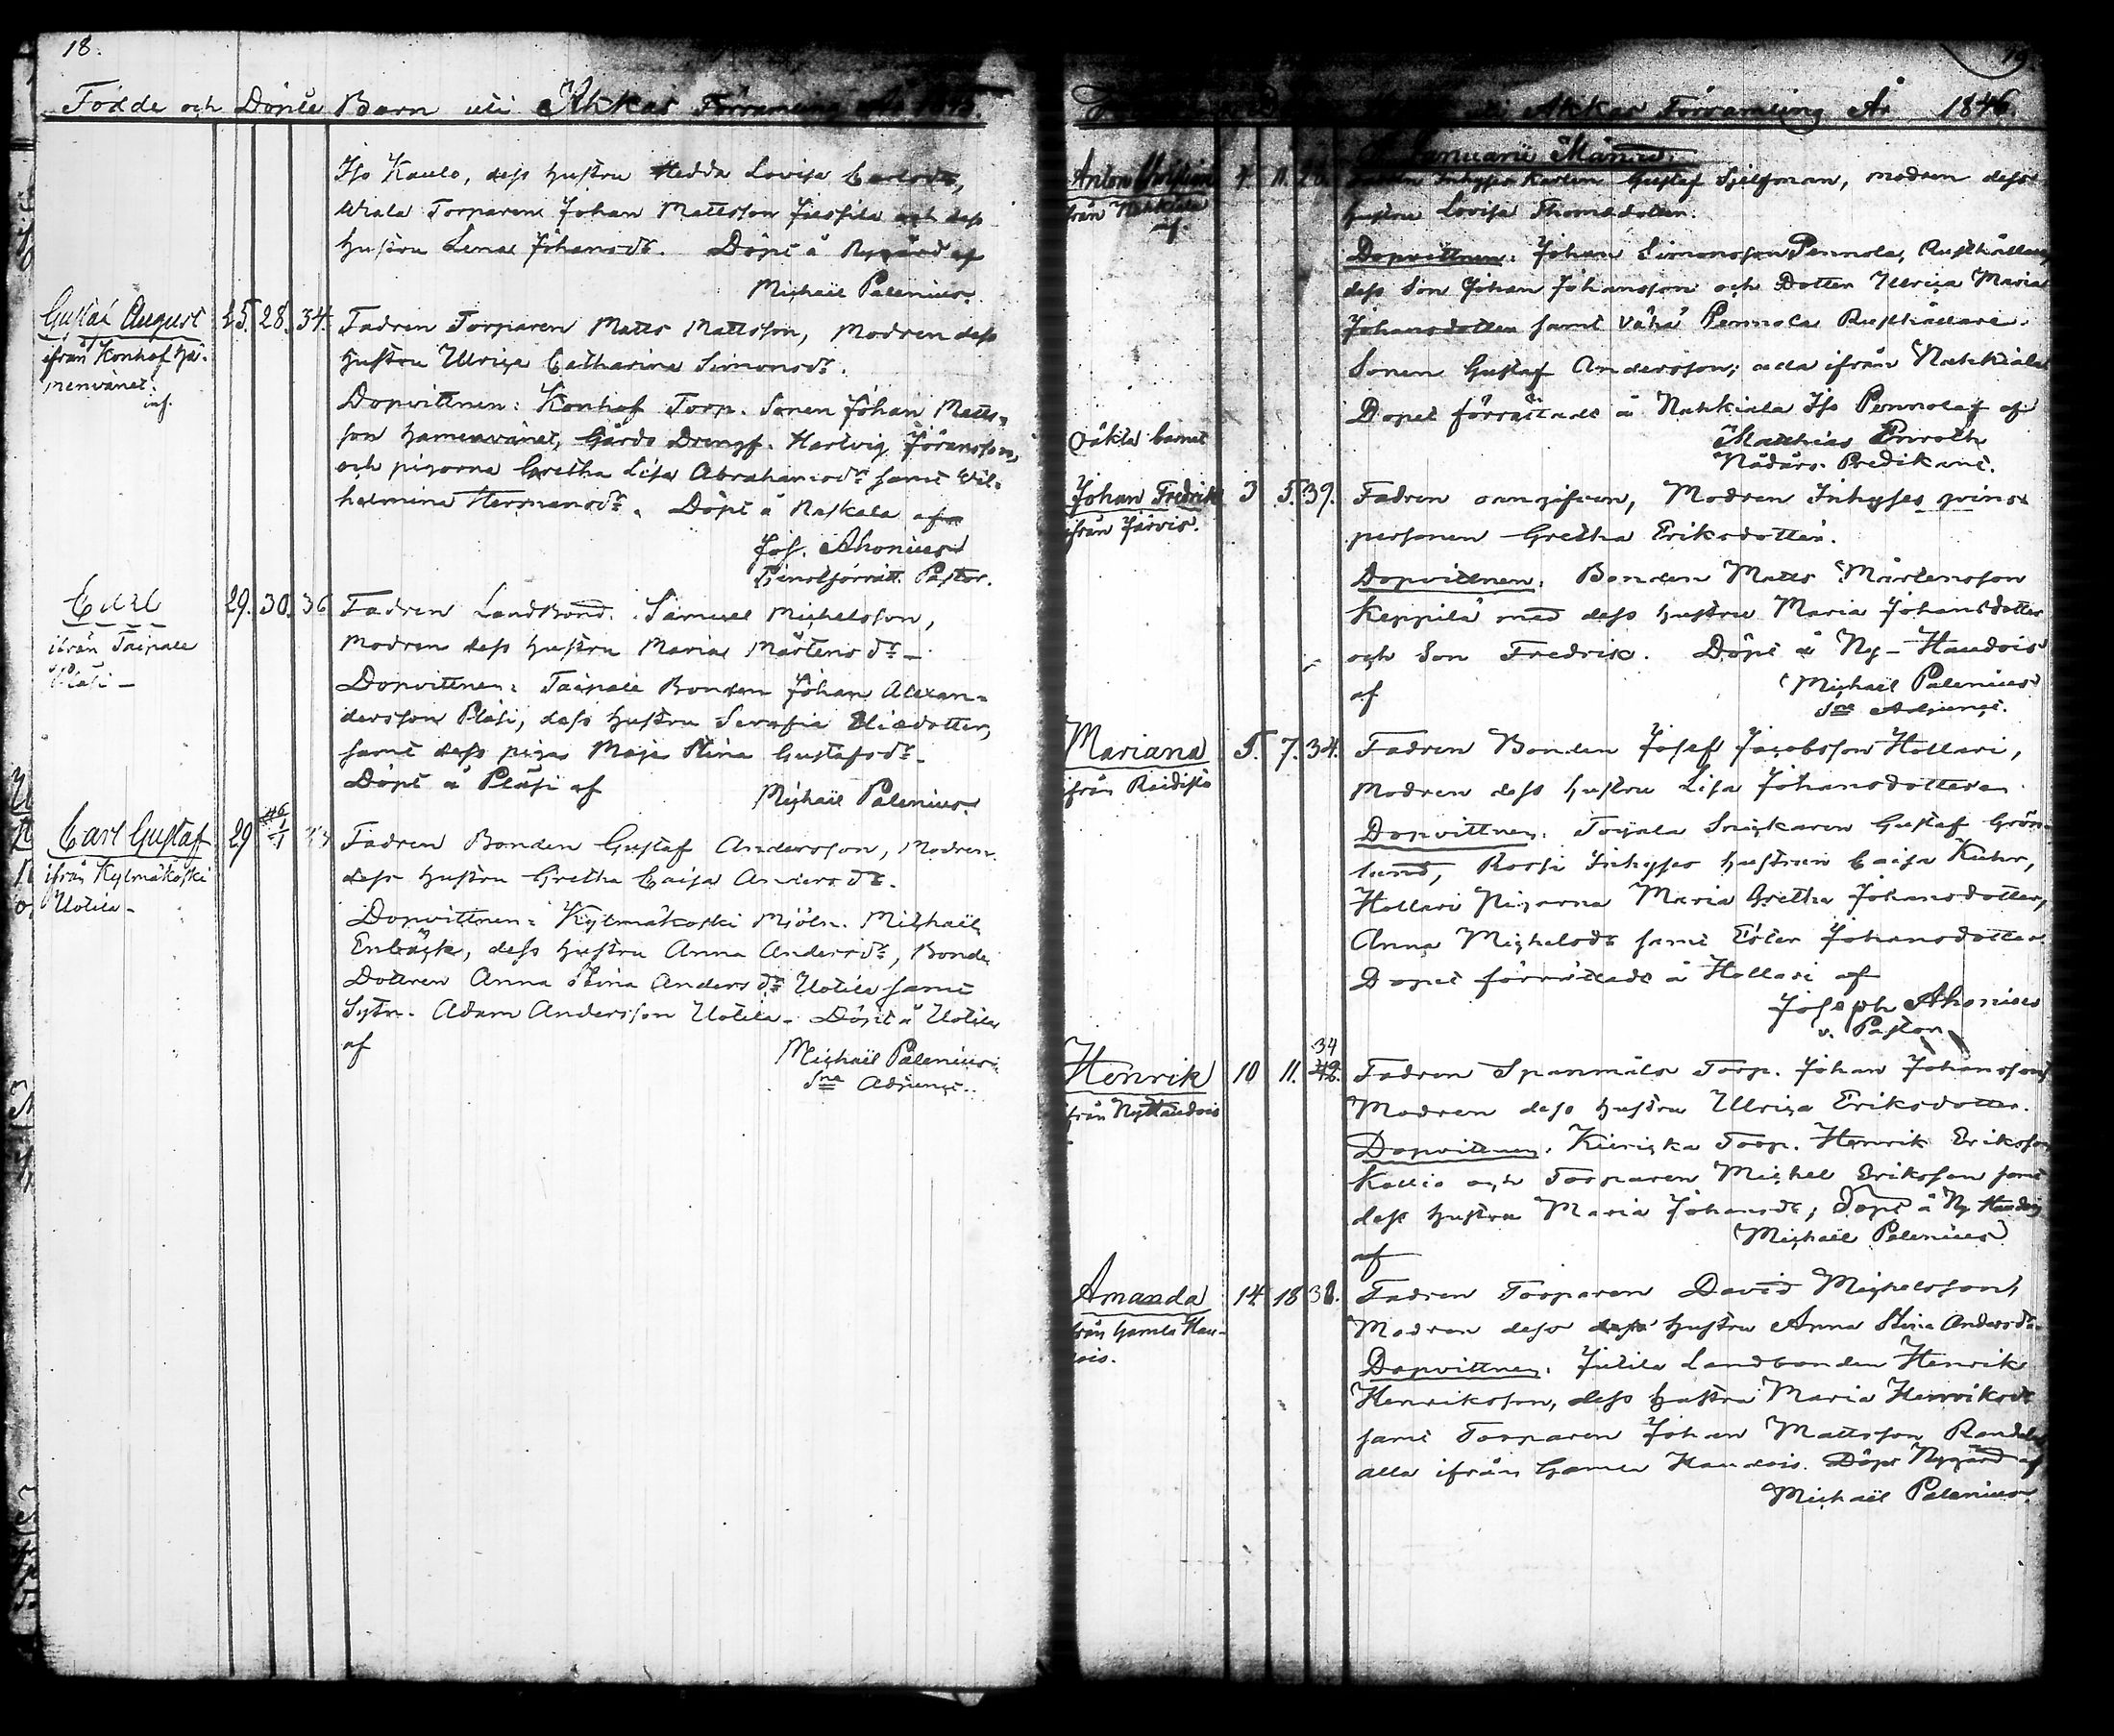 18.
Födde och Döpte Barn uti Akkas Församling År 1845.
Iso Kaulo, dess hustru Hedda Lovisa Carlsdr,
Wiala Torparen Johan Mattsson och dess
hustru Lena Johansdr. Döpt å Nygård af
Michaël Palenius.
Gustaf August
ifrån Konhof hä-
menvänet.
inf.
25. 28. 34.
Fadren Torparen Matts Mattsson, Modren dess
hustru Ulrica Catharina Simonsdr.
Dopvittnen: Konhof Torp. Sonen Johan Matts-
son Gårds Drengf. Hartvig Jöransson,
och pigorna Gretha Lisa Abrahamsdr samt Wil-
helmina Hermansdr. Döpt å Raskala af
Jos. Ahonius
Tjenstförrätt. Pastor.
Carl
ifrån Taipale
Pläsi -
29. 30. 36
Fadren Landbond. Samuel Michelsson,
Modren dess hustru Maria Mårtensdr -
Dopvittnen: Taipale Bonden Johan Alexan-
dersson Pläsi, dess hustru Serafia Eliædotter,
samt dess piga Maja Stina Gustafsdr -
Döpt å Pläsi af
Michaël Palenius.
Carl Gustaf
ifrån Kylmäkoski
Uotila -
29 46 1/1 33
Fadren Bonden Gustaf Andersson, Modren
dess hustru Gretha Caisa Andersdr.
Dopvittnen: Kylmäkoski Mjöln. Michaël
Enbäck, dess hustru Anna Andersdr, Bonde
Dottren Anna Stina Andersdr Uotila samt
Sytn. Adam Andersson Uotila - Döpt å Uotila
af
Michaël Palenius
Sne Adjunct.
19.
uti Akkas Församling År 1846.
Januarii Månad.
Anton Christian
från Nahkiala
inf.
11. 26.
Inhyses Karlen Gustaf Sjelfman, modren dess
hustru Lovisa Thomædotter.
Dopvittnen: Johan Simonsson Pennola, Rusthållare
dess Son Johan Johansson och Dotter Ulrica Maria
Johansdotter samt Vähä Pennola Rusthållare
Sonen Gustaf Andersson; alla ifrån Nahkiala
Dopet förrättadt å Nahkiala Iso Pennola af
Matthias Enroth
Nådårs Predikant.
Oäkta barnet
Johan Fredrik
ifrån Järvis.
3 5. 39.
Fadren oangifven, Modren Inhyses qvins-
personen Gretha Eriksdotter.
Dopvittnen: Bonden Matts Mårtensson
Keppilä med dess hustru Maria Johansdotter
och Son Fredrik. Döpt å Ny-Haudois
af
Michaël Palenius
Sne Adjunct.
Mariana
ifrån Roidisto
5. 7. 34.
Fadren Bonden Josef Jacobsson Hollari,
Modren dess hustru Lisa Johansdotter
Dopvittnen: Toijala Snickaren Gustaf Grön-
lund, Rossi Inhyses hustrun Caisa
Hollari Pigorna Maria Gretha Johansdotter,
Anna Michelsdr samt Ester Johansdotter
Dopet förrättadt å Hollari af
Joseph Ahonius
v. Pastor.
Henrik
från Ny Haudois
10 11. 42. 34
Fadren Spanmäla Torp. Johan Johansson
Modren dess hustru Ulrica Eriksdotter.
Dopvittnen: Torp. Henrik Eriksson
Kallio och Torparen Michel Eriksson samt
dess hustru Maria Johansdr; Döpt å Ny Haudois
af
Michaël Palenius
Amanda
från Gamla Hau-
dois.
14. 18 38.
Fadren Torparen David Michelsson,
Modren dess dess hustru Anna Stina Andersdr
Dopvittnen: Jutila Landbonden Henrik
Henriksson, dess hustru Maria Henriksdr
samt Torparen Johan Mattsson
alla ifrån Gamla Haudois. Döpt Nygård af
Michaël Palenius.